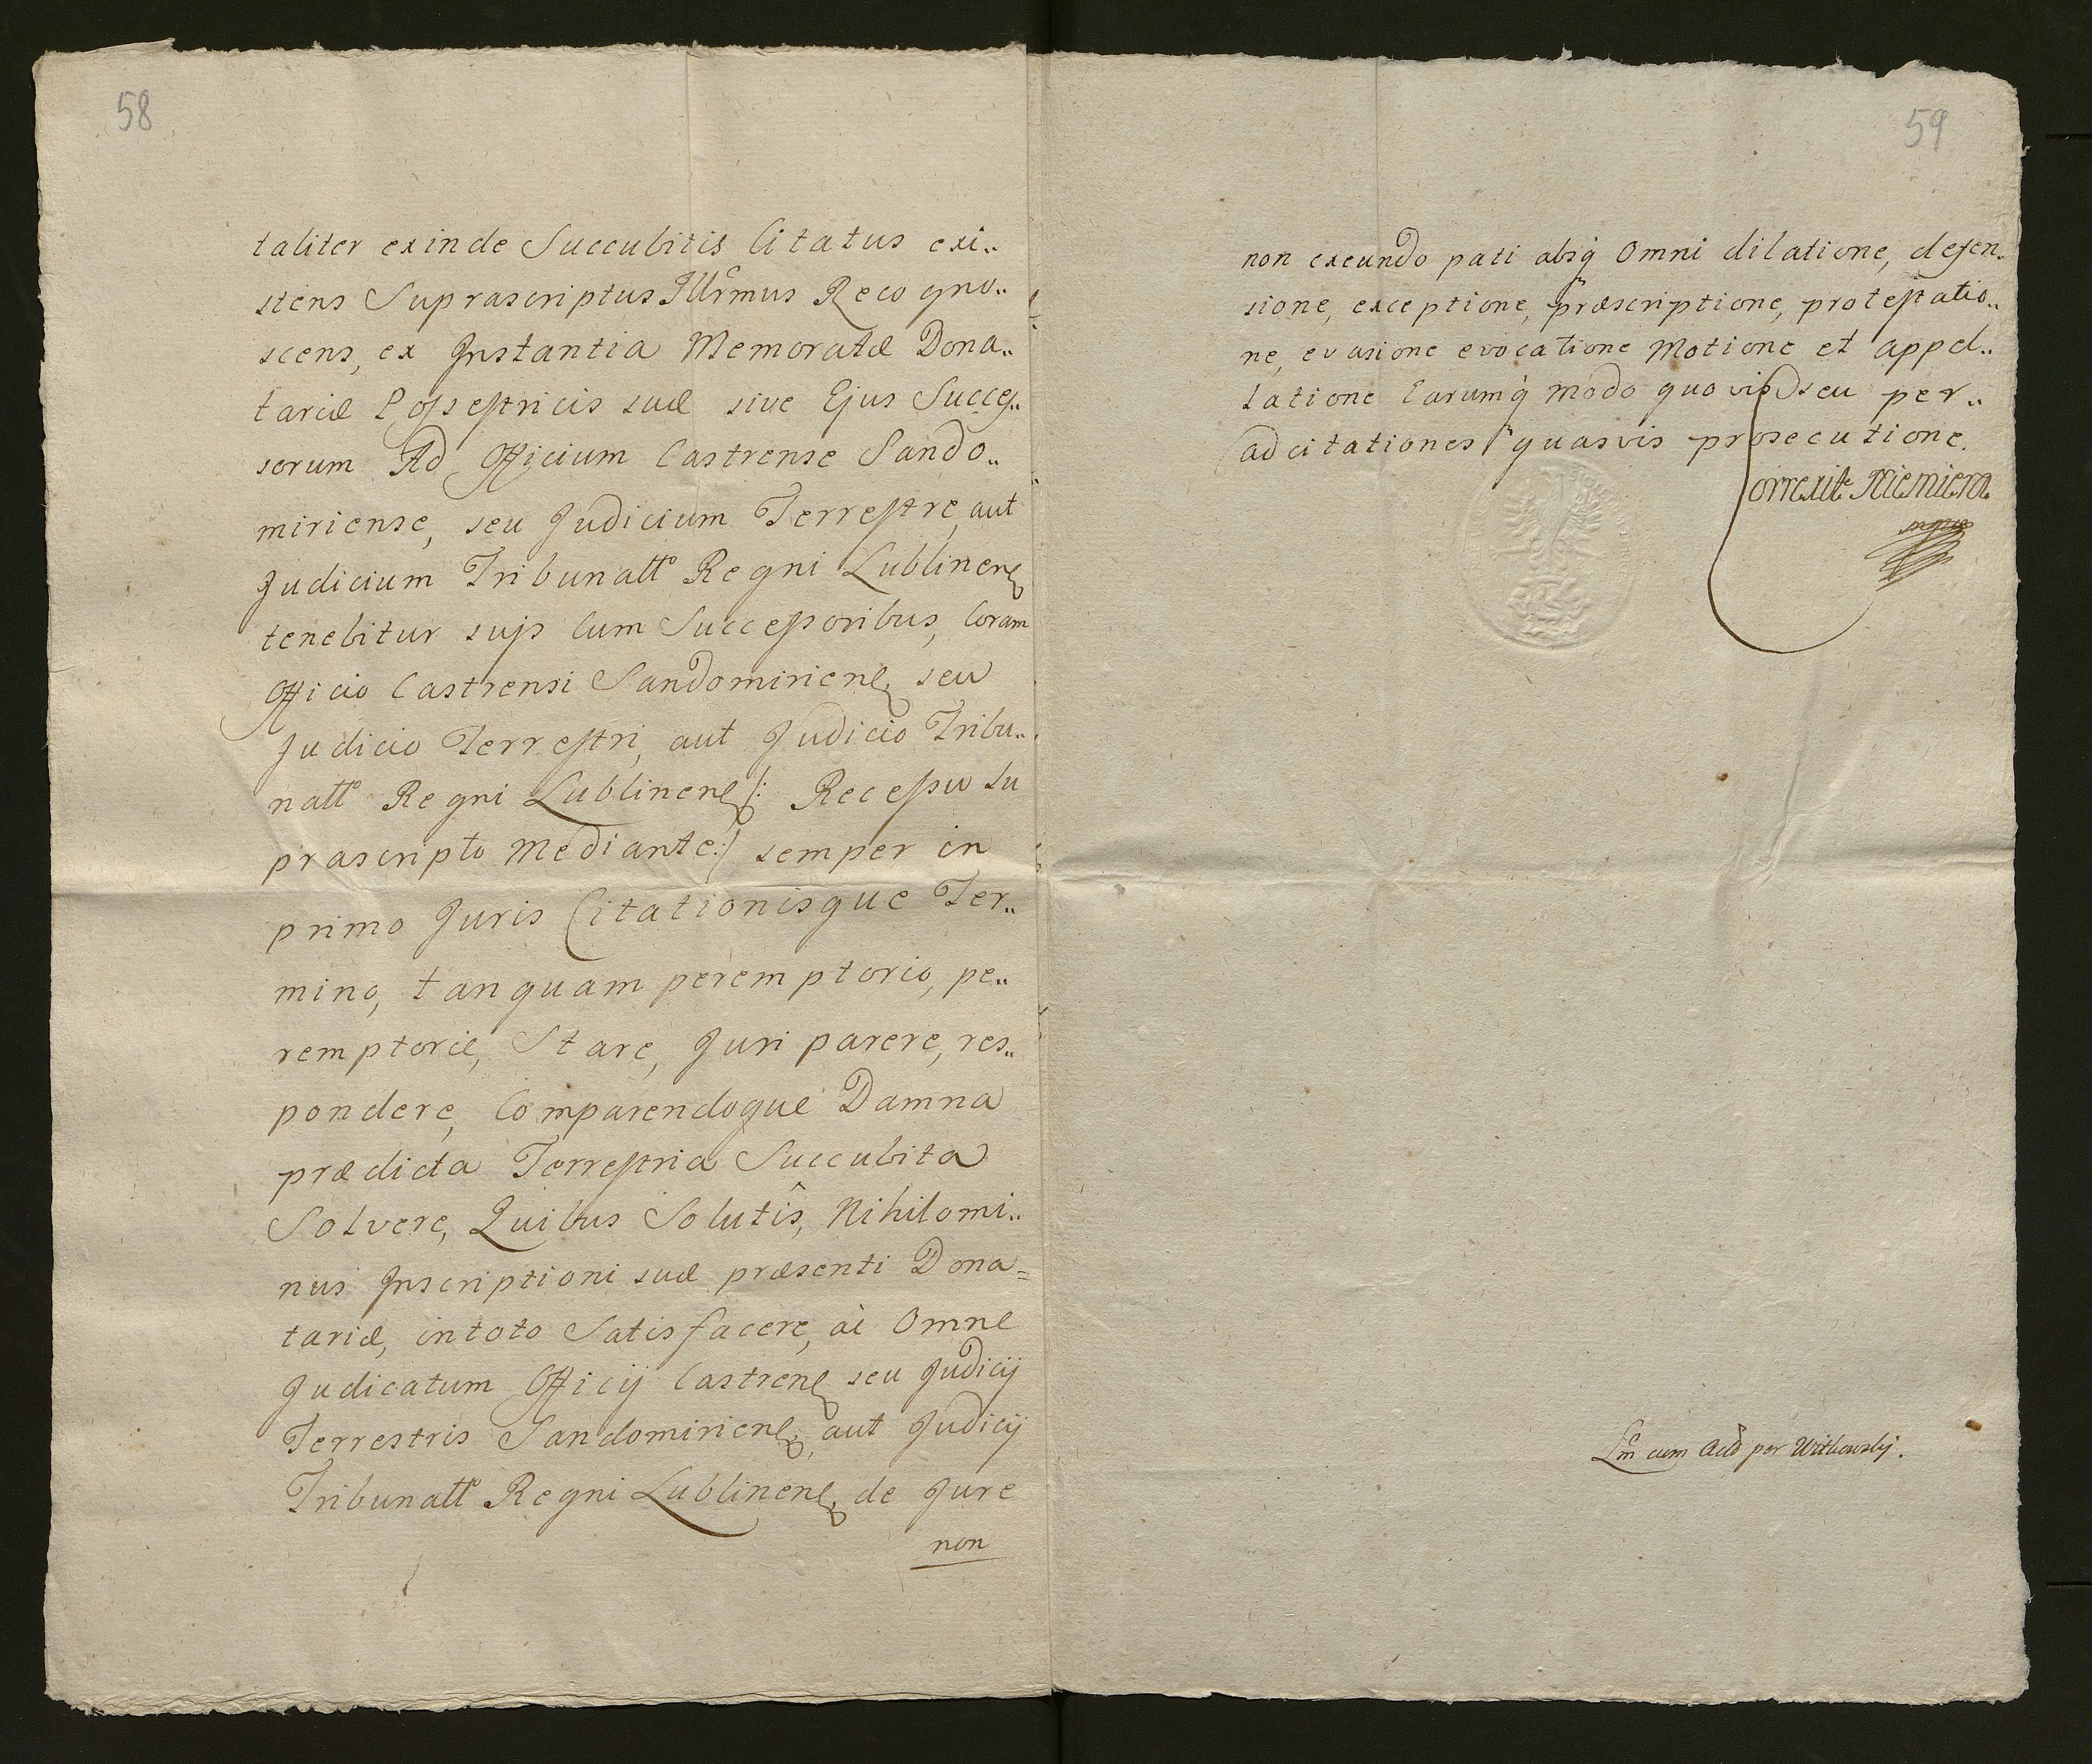 58
taliter exinde Succubitis Citatus exi..
stens Suprascriptus Illrmus Recogno..
scens, ex Instantia Memoratæ Dona..
tariæ Possestricis suæ sive Ejus Succes..
sorum Ad Officium Castrense Sando..
miriense, seu Judicium Terrestre, aut
Judicium Tribunalle Regni Lublinen
tenebitur sujs Cum Successoribus, Coram
Officio Castrensi Sandomirien, seu
Judicio Terrestri, aut Judicio Tribu..
nalle Regni Lublinen /: Recessu su
prascripto Mediante :/ semper in
primo Juris Citationisque Ter..
mino, tanquam peremptorio, pe..
remptorie, Stare, Juri parere, res..
pondere, Comparendoque Damna
prædicta Terrestria Succubita
Solvere, Quibus Solutîs, Nihilomi..
nus Inscriptioni suæ præsenti Dona=
tariæ, in toto Satisfacere, ac Omne
Judicatum Officij Castren seu Judicij
Terrestris Sandomirien, aut Judicij
Tribunalle Regni Lublinen, de Jure
non
59
non exeundo pati absq Omni dilatione, defen..
sione, exceptione, præscriptione, protestatio..
ne, evasione evocatione Motione et appel..
latione Earumq modo quovis seu per..
ad citationes quasvis prosecutione.
Correxit Niemiera
mpp
Lm cum Actis per Witkowskj.